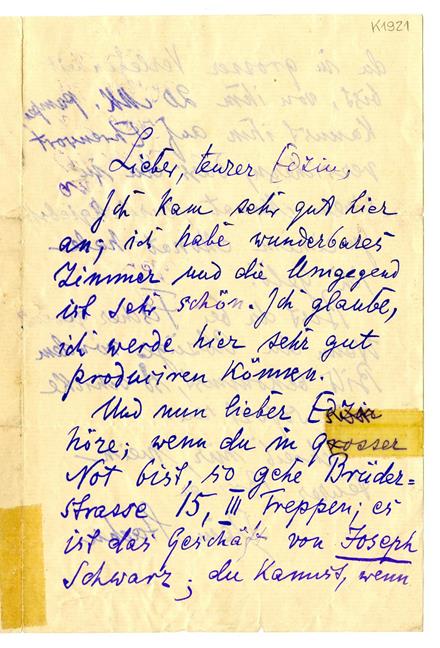 K1921
Lieber, teurer Edzin,
Ich kam sehr gut hier
an; ich habe wunderbares
Zimmer und die Umgegend
ist sehr schön. Ich glaube,
ich werde hier sehr gut
produciren können.
Und nun lieber
höre; wenn du in grosser
Not bist, so gehe Brüder=
strasse 15, III Treppen; es
ist das Geschäft von Joseph
Schwarz; du kannst, wenn